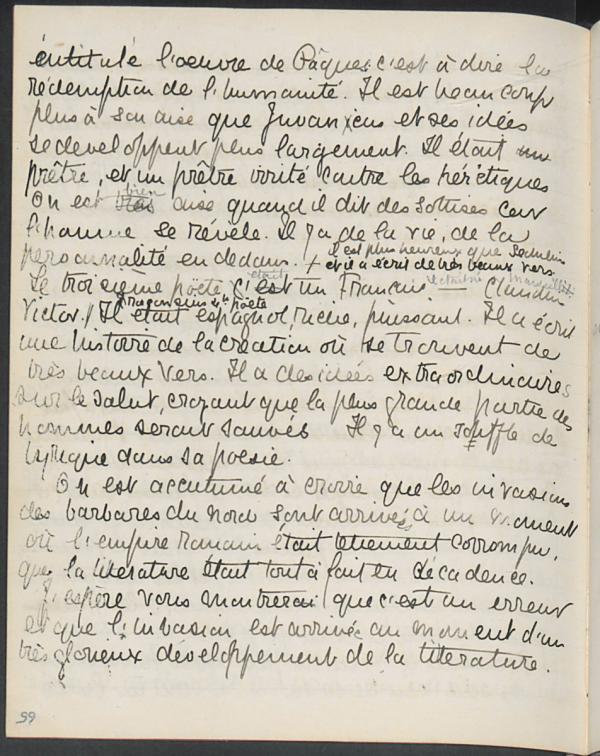 éntitulé l'oeuvre de Pâques: c'est à dire la
rédemption de l'humanité. Il est beaucoup
plus à son aise que Juvancus et ses idées
se developpent plus largement. Il était un
prêtre, et un prêtre irrité contre les hérétiques
bien
On est très aise quand il dit des sottises car
l'homme se révèle. Il y a de la vie, de la
personnalité en dedans. + il est plus heureux que Sedulius
et il a écrit de très beaux vers.
était
Le troisième poète c'est un Francais. — Claudius
Victor / Il était espagnol, riche, puissant. Il a écrit
Dragoncius 4th poète
une histoire de la création où se trouvent de
très beaux vers. Il a des idées extraordinaires
sur le salut, croyant que la plus grande partie des
hommes seront sauvés Il y a un souffle de
lyrique dans sa poesie.
On est accutumé à croire que les invasions
des barbares du Nord sont arrivés à un moment
où l'empire Romain était corrompu,
que la literature était tout à fait en décadence.
J'espère vous montrerai que c'est un erreur
et que l'invasion est arrivée au moment d'un
très glorieux développement de la literature.
99